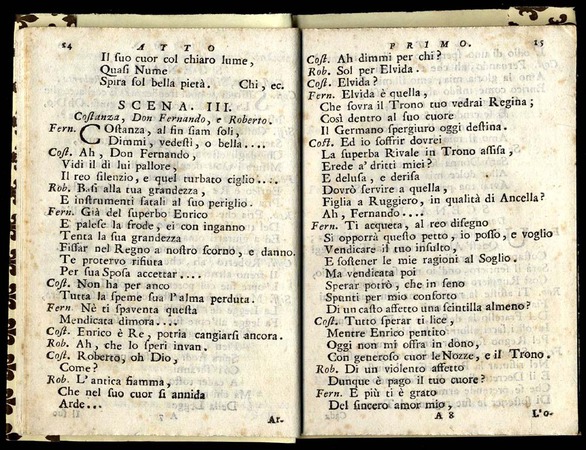 24 ATTO
Il suo cuor col chiaro lume,
Quasi Nume
Spira sol bella pietà. Chi, ec.
SCENA. III.
Costanza, Don Fernando, e Roberto.
Fern. COstanza, al fin siam soli,
Dimmi, vedesti, o bella....
Cost. Ah, Don Fernando,
Vidi il di lui pallore,
Il reo silenzio, e quel turbato ciglio....
Rob. Basi alla tua grandezza,
E instrumenti fatali al suo periglio.
Fern. Già del superbo Enrico
E palese la frode, ei con inganno
Tenta la sua grandezza
Fissar nel Regno a nostro scorno, e danno.
Te protervo rifiuta
Per sua Sposa accettar....
Cost. Non ha per anco
Tutta la speme sua l'alma perduta.
Fern. Nè ti spaventa questa
Mendicata dimora....
Cost. Enrico è Re, potria cangiarsi ancora.
Rob. Ah, che lo speri invan.
Cost. Roberto, oh Dio,
Come?
Rob. L'antica fiamma,
Che nel suo cuor si annida
Arde...
A 7 Ar-
PRIMO. 15
Cost. Ah dimmi per chi?
Rob. Sol per Elvida.
Cost. Elvida?
Fern. Elvida è quella,
Che sovra il Trono tuo vedrai Regina;
Così dentro al suo cuore
Il Germano spergiuro oggi destina.
Cost. Ed io soffrir dovrei
La superba Rivale in Trono assisa,
Erede a' dritti miei?
E delusa, e derisa
Dovrò servire a quella,
Figlia a Ruggiero, in qualità di Ancella?
Ah, Fernando....
Fern. Ti acqueta, al reo disegno
Si opporrà questo petto, io posso, e voglio
Vendicare il tuo insulto,
E sostener le mie ragioni al Soglio.
Ma vendicata poi
Sperar potrò, che in seno
Spunti per mio conforto
Di un casto affetto una scintilla almeno?
Cost. Tutto sperar ti lice,
Mentre Enrico pentito
Oggi non mi offra in dono,
Con generoso cuor le Nozze, e il Trono.
Rob. Di un violento affetto
Dunque è pago il tuo cuore?
Fern. E più ti è grato
Del sincero amor mio,
A 8 L'o-